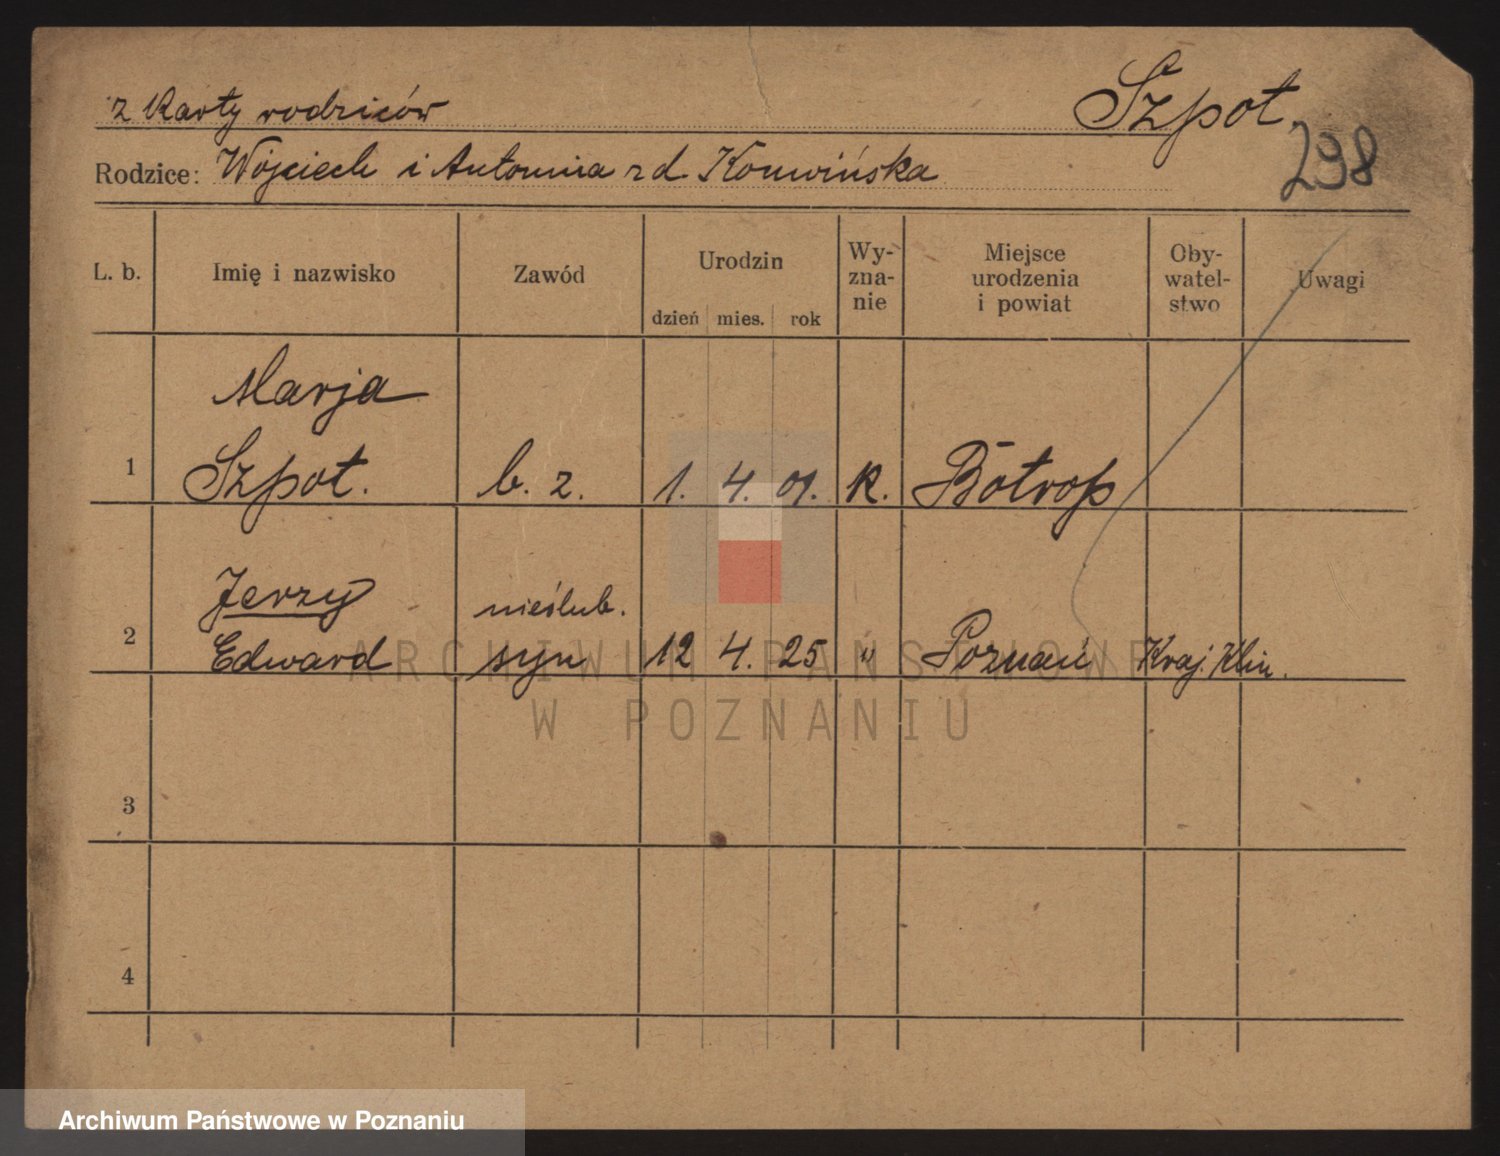 z Karty rodziców
Szpot
298
Rodzice: Wojciech i Antonina z d. Konwińska
L. b.
Imię i nazwisko
Zawód
Urodzin
dzień mies. rok
Wy-
zna-
nie
Miejsce
urodzenia
i powiat
Oby-
watel-
stwo
Uwagi
Marja
1 Szpot. b. z. 1. 4. 01. K. Botrop
Jerzy nieślub.
2 Edward syn 12 4. 25 " Poznań Kraj. Klin.
3
4
ARCHIWUM PAŃSTWOWE
W POZNANIU
Archiwum Państwowe w Poznaniu